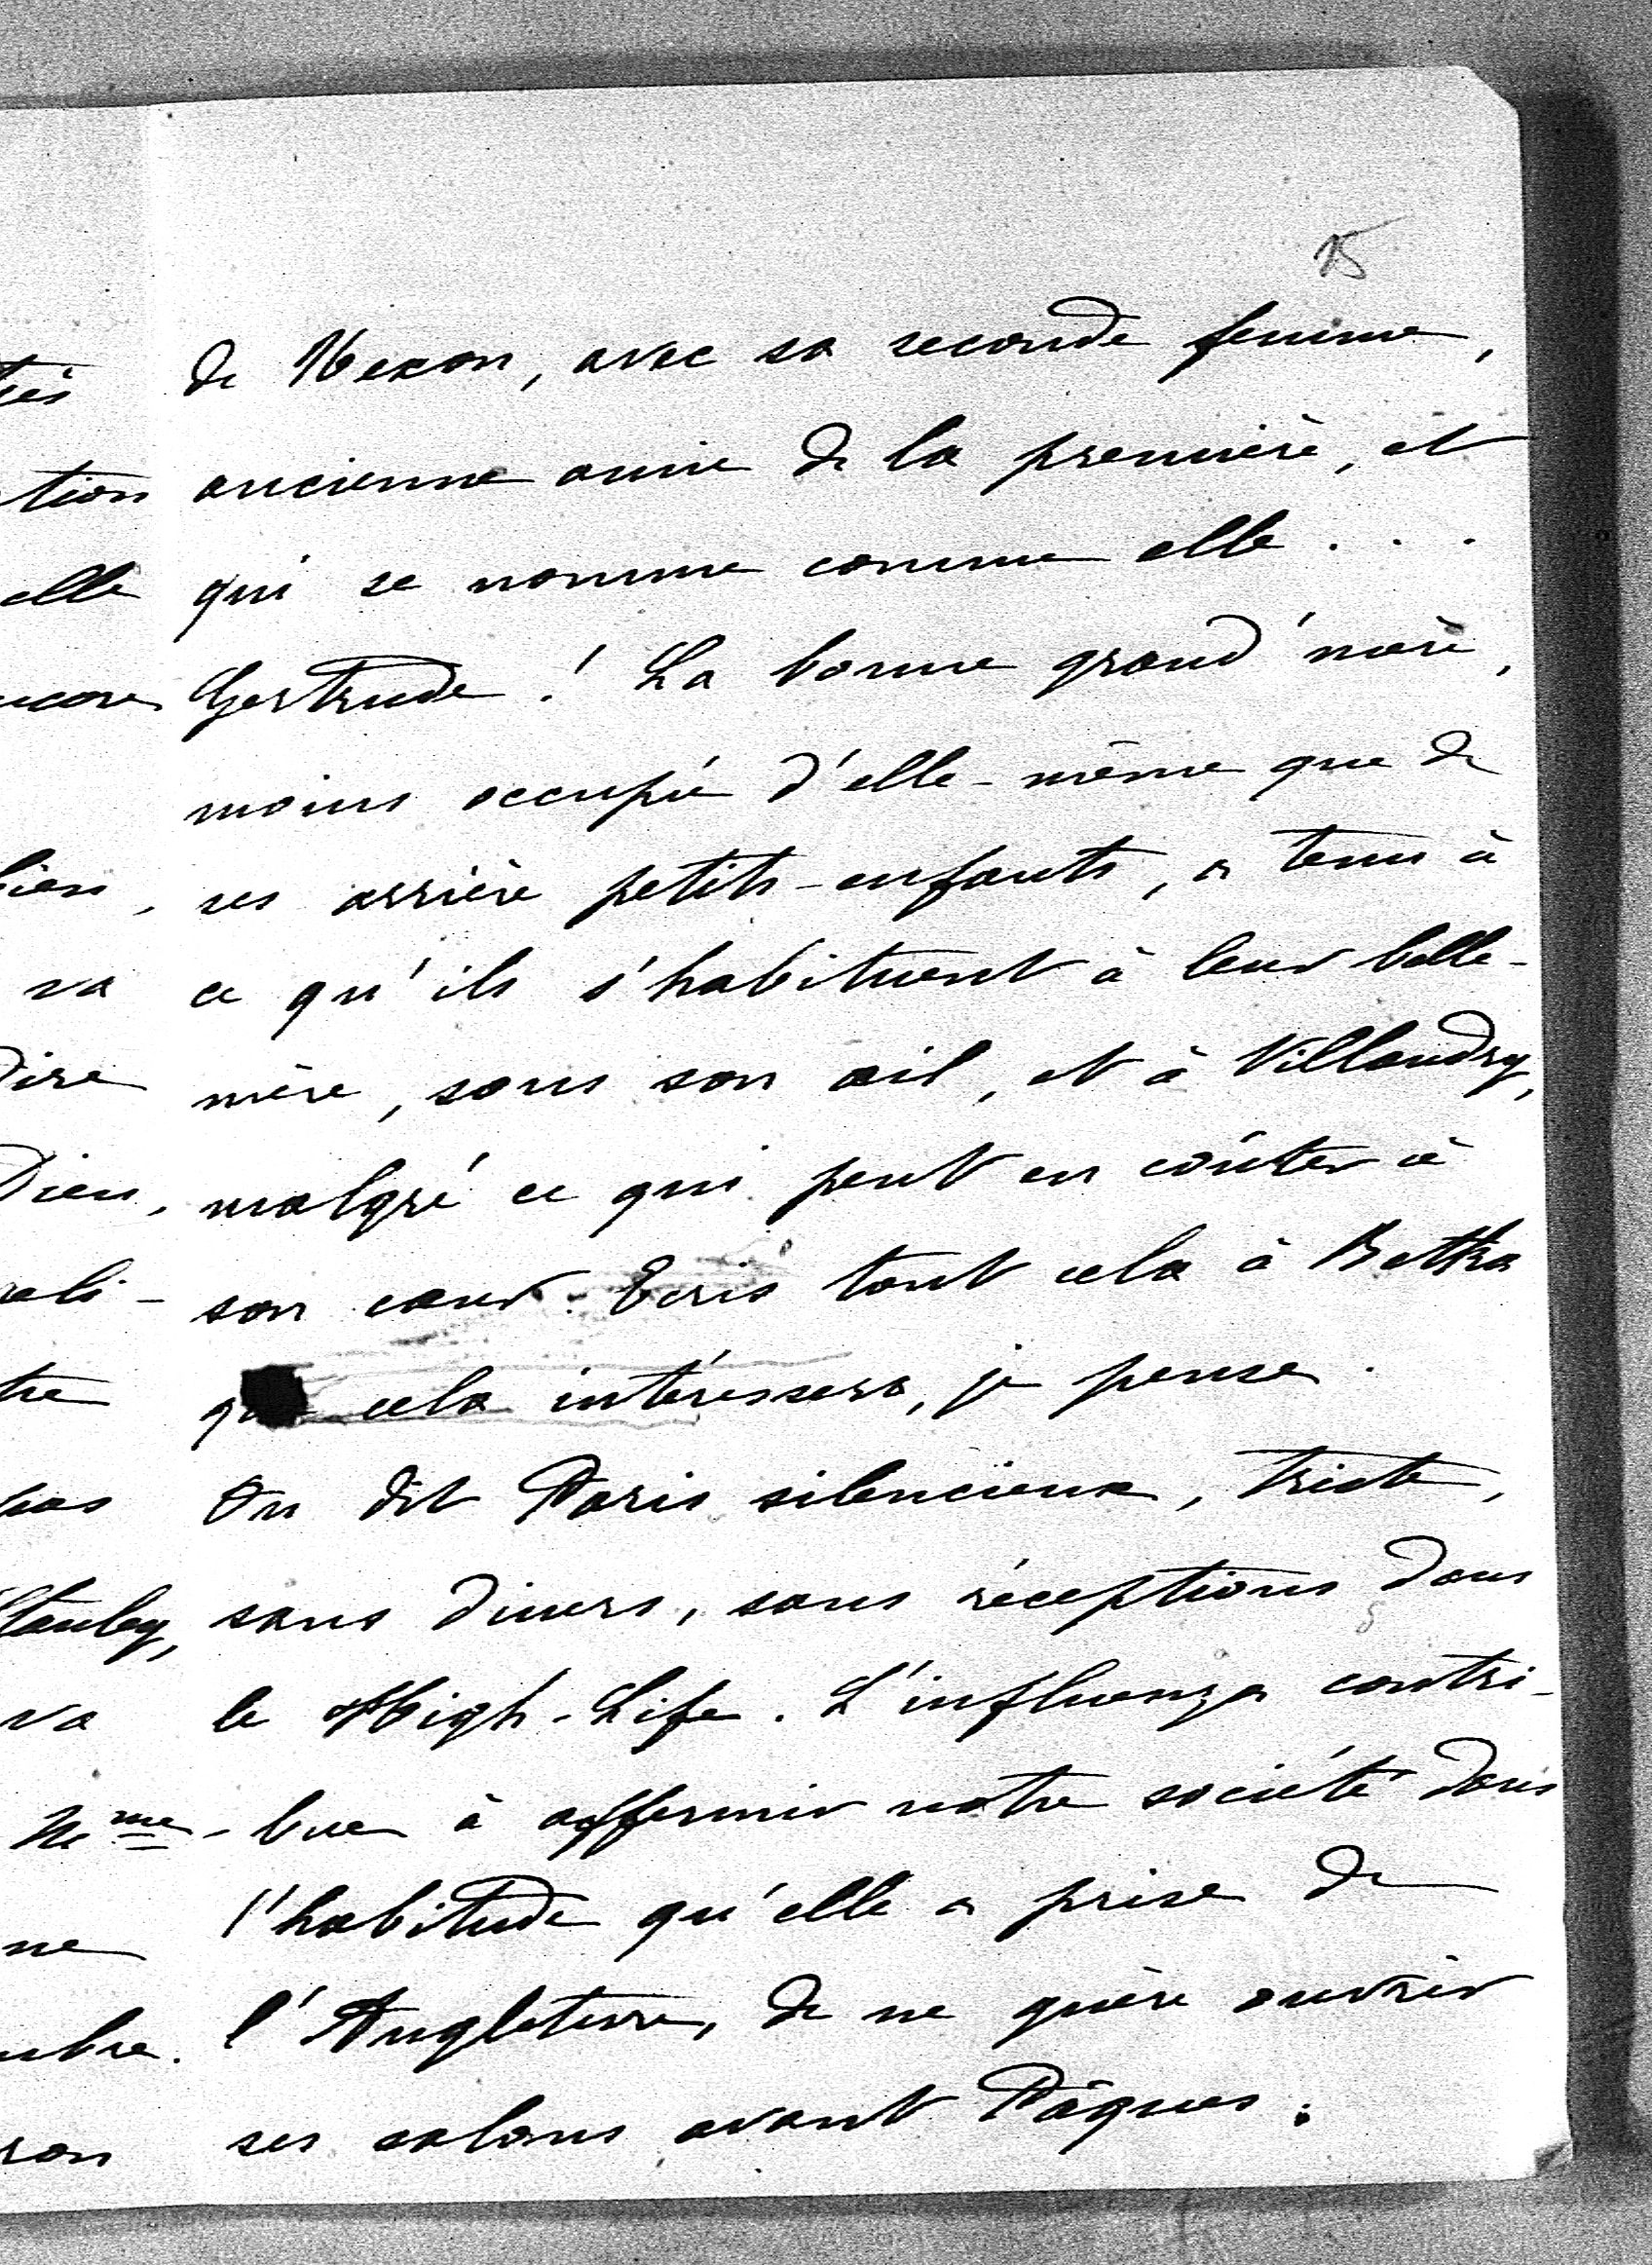 15
de Nexon, avec sa seconde femme,
ancienne amie de la première, et
qui se nomme comme elle . . .
Gertrude ! La bonne grand'mère,
moins occupée d'elle-même que de
ses arrière petits-enfants, a tenu à
ce qu'ils s'habituent à leur belle-
mère, sous son œil, et à Villandry,
malgré ce qui peut en coûter à
son cœur. Ecris tout cela à Betka
cela intéressera, je pense.
On dit Paris silencieux, triste,
sans diners, sans réceptions dans
le High-Life. L'influenza contri-
-bue à affermir notre société dans
l'habitude qu'elle a prise de
l'Angleterre, de ne guère ouvrir
ses salons avant Pâques.